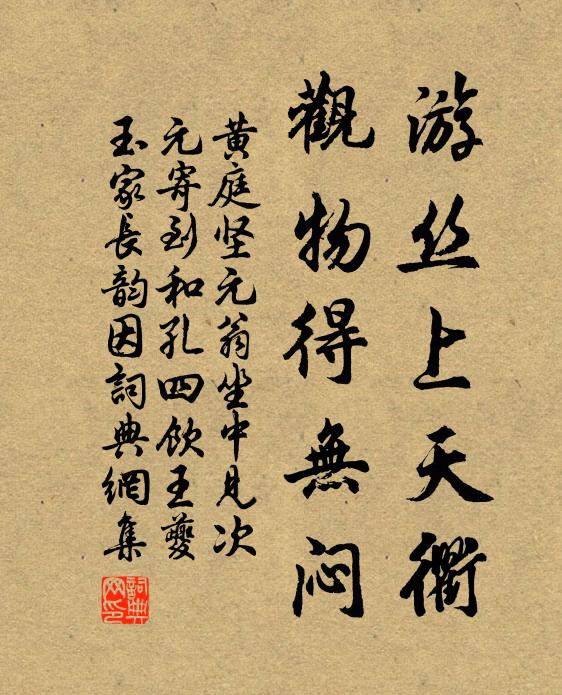 游丝上天衢
觀物得無闷
黄庭坚元翁坐中见次
元寄到和孔四饮王夔
玉家长韵因詞典網集
詞典网印